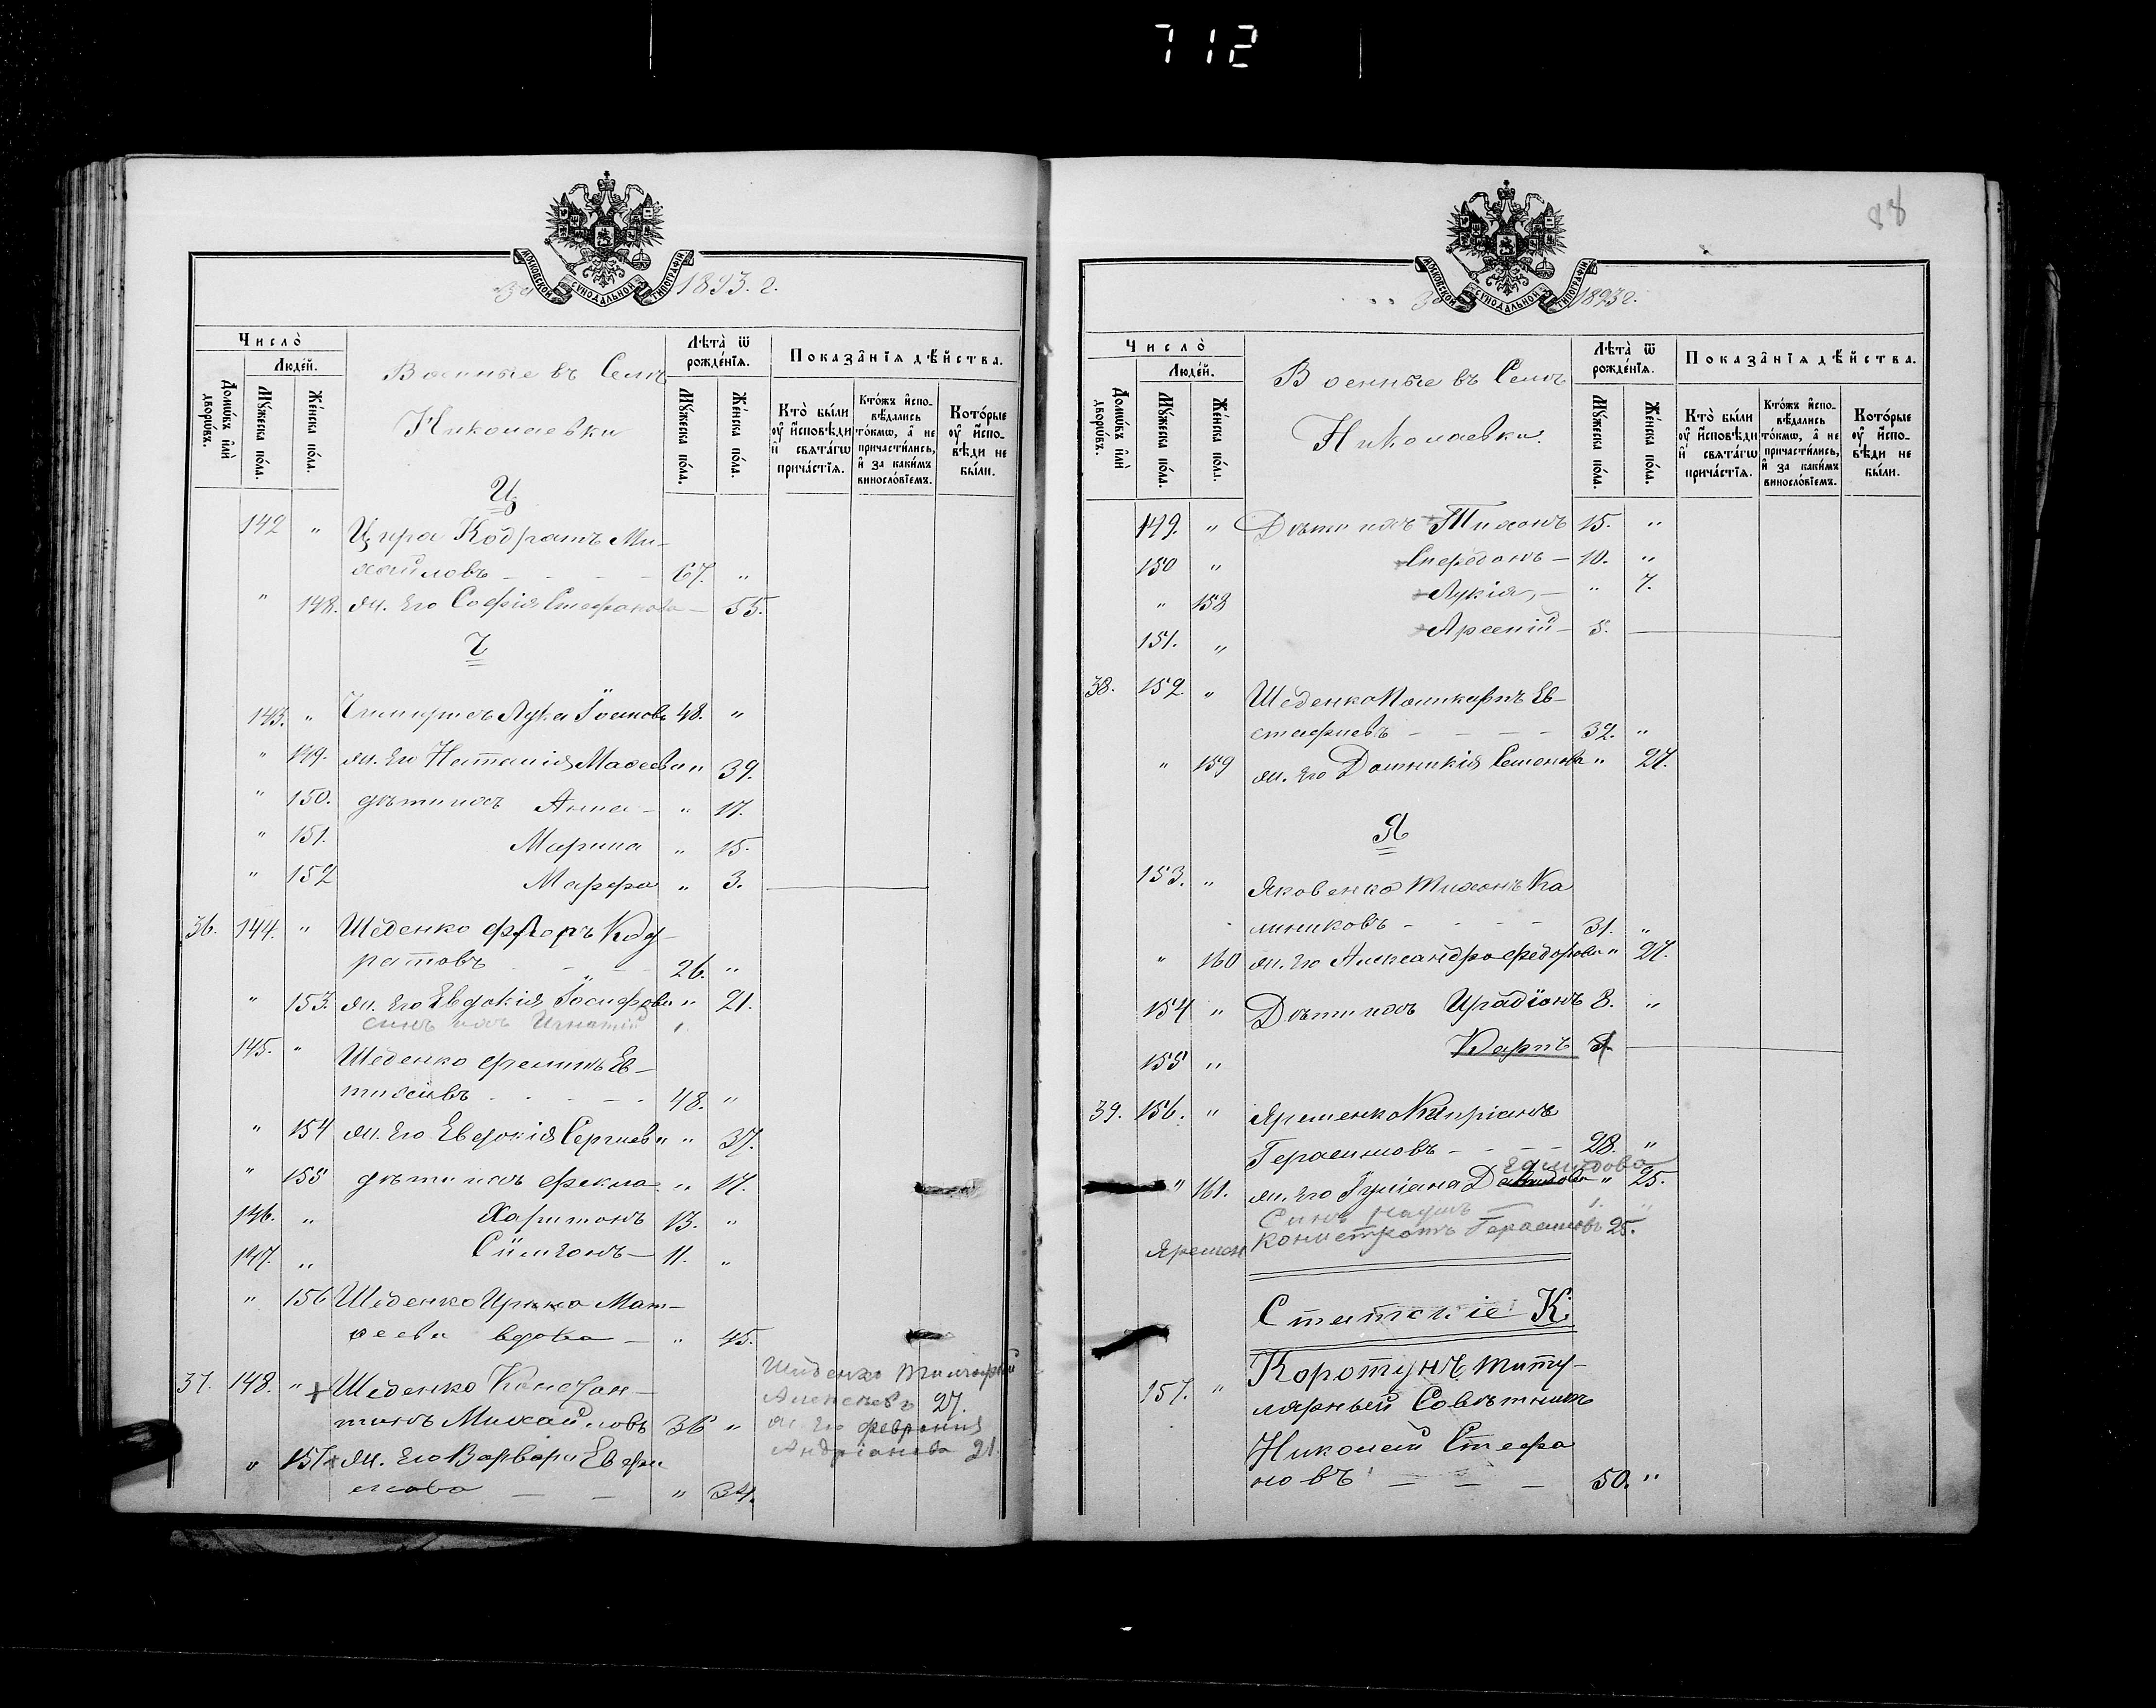 712
МОСКОВСКОЙ СѴНОДАЛЬНОЙ ТИПОГРАФІИ
За 1893. г.
Число̀
Люде́й.
Домѡ́въ и҆лѝ дворѡ́въ.
Мꙋ́жеска по́ла.
Же́нска по́ла.
Военные въ Селѣ
Николаевки
Лѣ́та ѿ рожде́нїѧ.
Мꙋ́жеска по́ла.
Же́нска по́ла.
Показа̂нїѧ дѣ́йства.
Кто̀ бы́ли оу҆ и҆сповѣ́ди и҆ свѧта́гѡ прича́стїѧ.
Кто́жъ и҆спо-
вѣ́дались
то́кмѡ, а҆ не
причасти́лись,
и҆ за каки́мъ
винословїемъ.
Кото́рые оу҆ и҆спо-
вѣ́ди не бы́ли.
Ц
142 " Цира Кодратъ Ми-
хайловъ - - - - 67. "
" 148. Ж. Его Софія Стефанова - 55.
Ч
143. " Лука 48. "
" 149. Ж. Его Наталія " 39.
" 150. дѣти ихъ Анна - " 17.
" 151. Марина " 15.
" 152 Марфа " 3.
36. 144. " Шеденко Флоръ Код-
ратовъ - - - 26. "
" 153. Ж. Его Евдокія Іосифова " 21.
сынъ ихъ Игнатій 1.
145. " Шеденко Филипъ Ев-
тихіевъ - - - - - 48. "
" 154 Ж. Его Евдокія Сергиева " 37.
" 155 дѣти ихъ Фекла " 17.
146. " Харитонъ 13. "
147. " Сѵмеонъ - 11. "
" 156 Шеденко Ирина Мат-
феева вдова - " 45.
37. 148. " + Шеденко Констан-
тинъ Михайловъ 36 "
" 157 + Ж. Его Варвара Евфи
мова - - " 34.
Шеденко Тимофей
Алексѣевъ 27.
Ж. Его Февронія
Андріанова 21.
88
МОСКОВСКОЙ СѴНОДАЛЬНОЙ ТИПОГРАФІИ
За 1893 г.
Число̀
Люде́й.
Домѡ́въ и҆лѝ дворѡ́въ.
Мꙋ́жеска по́ла.
Же́нска по́ла.
Военные въ Селѣ
Николаевки.
Лѣ́та ѿ рожде́нїѧ.
Мꙋ́жеска по́ла.
Же́нска по́ла.
Показа̂нїѧ дѣ́йства.
Кто̀ бы́ли оу҆ и҆сповѣ́ди и҆ свѧта́гѡ прича́стїѧ.
Кто́жъ и҆спо-
вѣ́дались
то́кмѡ, а҆ не
причасти́лись,
и҆ за каки́мъ
винословїемъ.
Кото́рые оу҆ и҆спо-
вѣ́ди не бы́ли.
149. " Дѣти ихъ Тихонъ 15. "
150 " Спередонъ - 10. "
" 158 Лукія, - " 7.
151. " Арсеній - 5.
38. 152. " Шеденко Поликарпъ Ев-
стафиевъ - - - - 32. "
" 159 Ж. Его Домникія Семонова " 27.
Я
153. " Яковенко Тихонъ Ка
линиковъ - - - - 31. "
" 160 Ж. Его Александра Федорова " 27.
154 " Дѣти ихъ Иродіонъ 8. "
155 " Карпъ
39. 156. " Яременко Кипріанъ
Герасимовъ - - - - 28. "
" 161. Ж. Его Іуліана " 25.
Сынъ Наумъ - 1. "
Яремен Конистратъ Герасимовъ 25.
Статскіе К.
157. " Коротунъ, титу-
лярный Совѣтникъ
Николай Стефа
новъ - - - 50. "